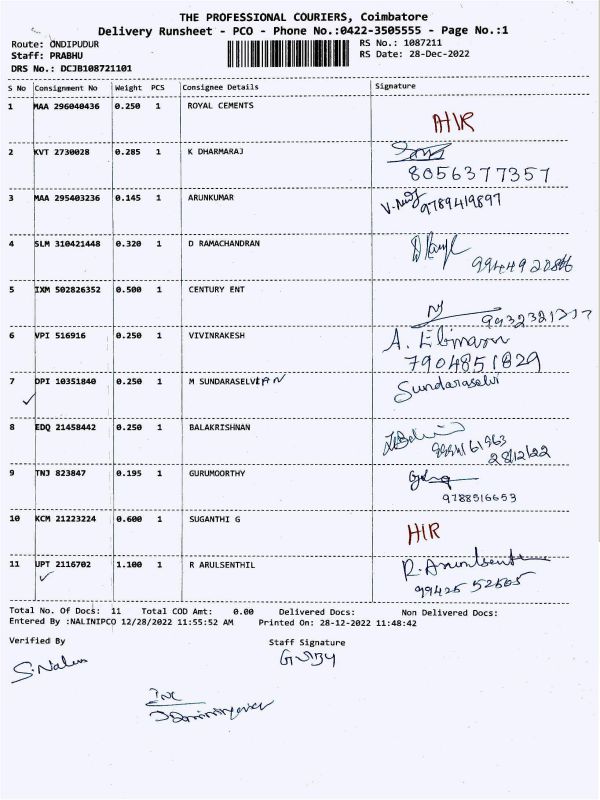 THE PROFESSIONAL COURIERS, Coimbatore
Delivery Runsheet - PCO - Phone No.:0422-3505555 - Page No.:1
Route: ONDIPUDUR RS No.: 1087211
Staff: PRABHU RS Date: 28-Dec-2022
DRS No.: DCJB108721101
S No Consignment No Weight PCS Consignee Details Signature
1 MAA 296040436 0.250 1 ROYAL CEMENTS
2 KVT 2730028 0.285 1 K DHARMARAJ
8056377357
3 MAA 295403236 0.145 1 ARUNKUMAR
9789419897
4 SLM 310421448 0.320 1 D RAMACHANDRAN
5 IXM 502826352 0.500 1 CENTURY ENT
6 VPI 516916 0.250 1 VIVINRAKESH A.
7904851829
7 DPI 10351840 0.250 1 M SUNDARASELVIAN Sundaraselvi
8 EDQ 21458442 0.250 1 BALAKRISHNAN
28/12/22
9 TNJ 823847 0.195 1 GURUMOORTHY
9788516653
10 KCM 21223224 0.600 1 SUGANTHI G
H1R
11 UPT 2116702 1.100 1 R ARULSENTHIL R.
99425 52565
Total No. Of Docs: 11 Total COD Amt: 0.00 Delivered Docs: Non Delivered Docs:
Entered By :NALINIPCO 12/28/2022 11:55:52 AM Printed On: 28-12-2022 11:48:42
Verified By Staff Signature